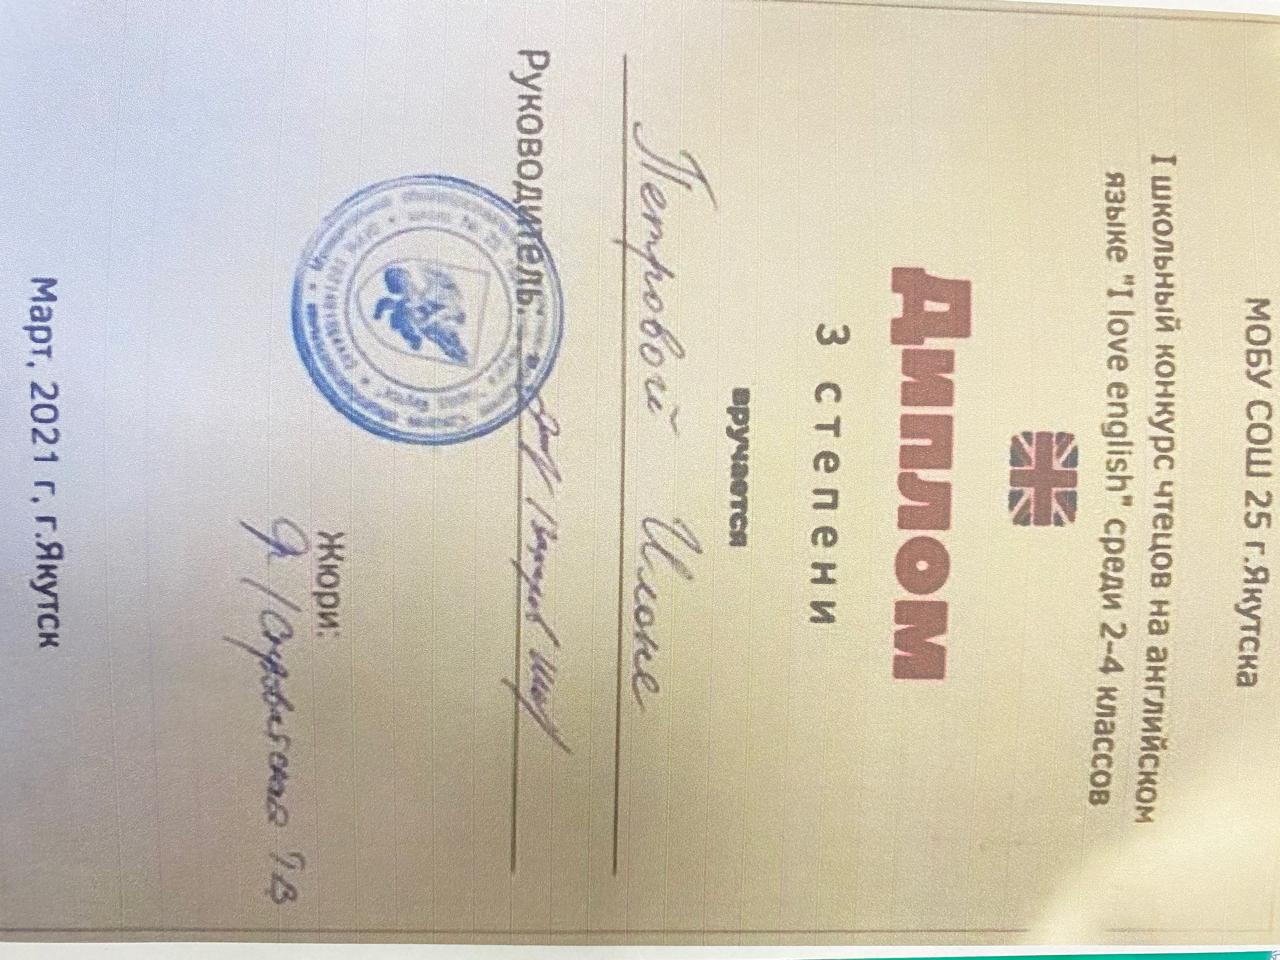 МОБУ СОШ 25 г.Якутска
I школьный конкурс чтецов на английском
языке "I love english" среди 2-4 классов
Диплом
3 степени
вручается
Петровой Илоне
Руководитель:
Жюри:
Март, 2021 г, г.Якутск